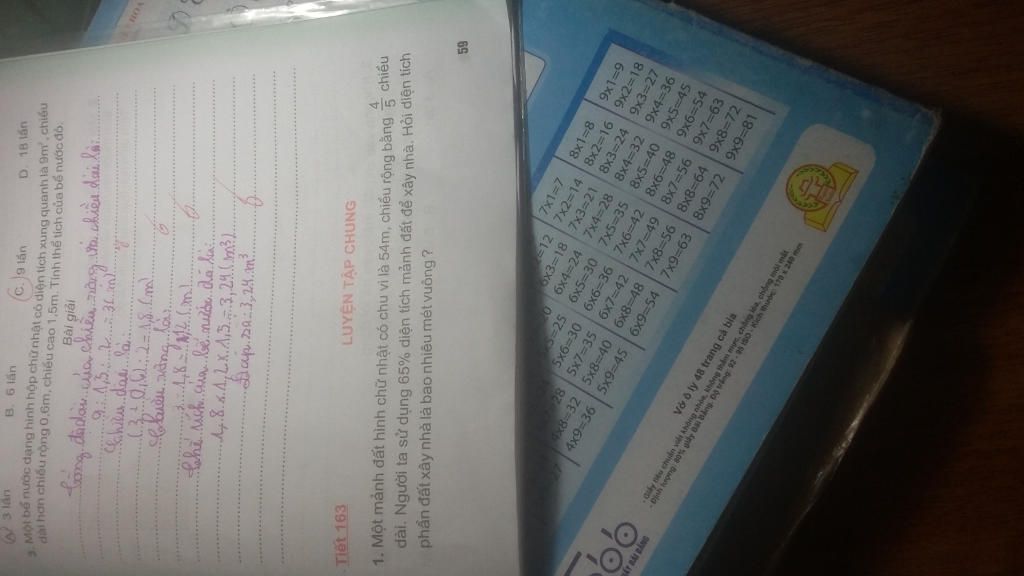 A. 3 lần B. 6 lần C. 9 lần D. 18 lần
3. Một bể nước dạng hình hộp chữ nhật có diện tích xung quanh là 9m², chiều
dài hơn chiều rộng 0,6m, chiều cao 1,5m. Tính thể tích của bể nước đó.
Bài giải
của chiều rộng và chiều dài là:
9 : 1,5 : 2 = 3 (m)
Chiều dài là:
(3 + 0,6) : 2 = 1,8 (m)
Chiều rộng là:
3 - 1,8 = 1,2 (m)
Thể tích của bể nước đó là:
1,8 x 1,2 x 1,5 = 3,24 (m³)
Đáp số: 3,24 m³
Tiết 163
LUYỆN TẬP CHUNG
1. Một mảnh đất hình chữ nhật có chu vi là 54m, chiều rộng bằng 4/5 chiều
dài. Người ta sử dụng 65% diện tích mảnh đất để xây nhà. Hỏi diện tích
phần đất xây nhà là bao nhiêu mét vuông ?
59
4x8=32
4x9=36
5x6=30
5x7=35
5x8=40
5x9=45
6x3=18
6x4=24
6x5=30
6x6=36
6x7=42
6x8=48
6x9=54
7x1=7
7x2=14
7x3=21
7x4=28
7x5=35
7x6=42
7x7=49
7x8=56
7x9=63
8x1=8
8x2=16
8x3=24
8x4=32
8x5=40
8x6=48
8x7=56
8x8=64
8x9=72
9x1=9
9x2=18
9x3=27
9x4=36
9x5=45
9x6=54
9x7=63
9x8=72
9x9=81
Vở ô ly 48 trang cả bìa